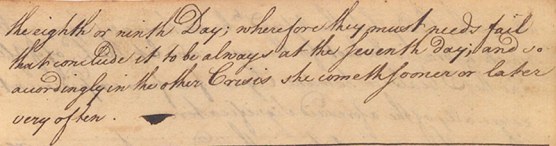 the eighth or ninth Day; wherefore they must needs fail
that conclude it to be always at the Seventh Day; and so
accordingly in the other Crisis she cometh sooner or later
very often.